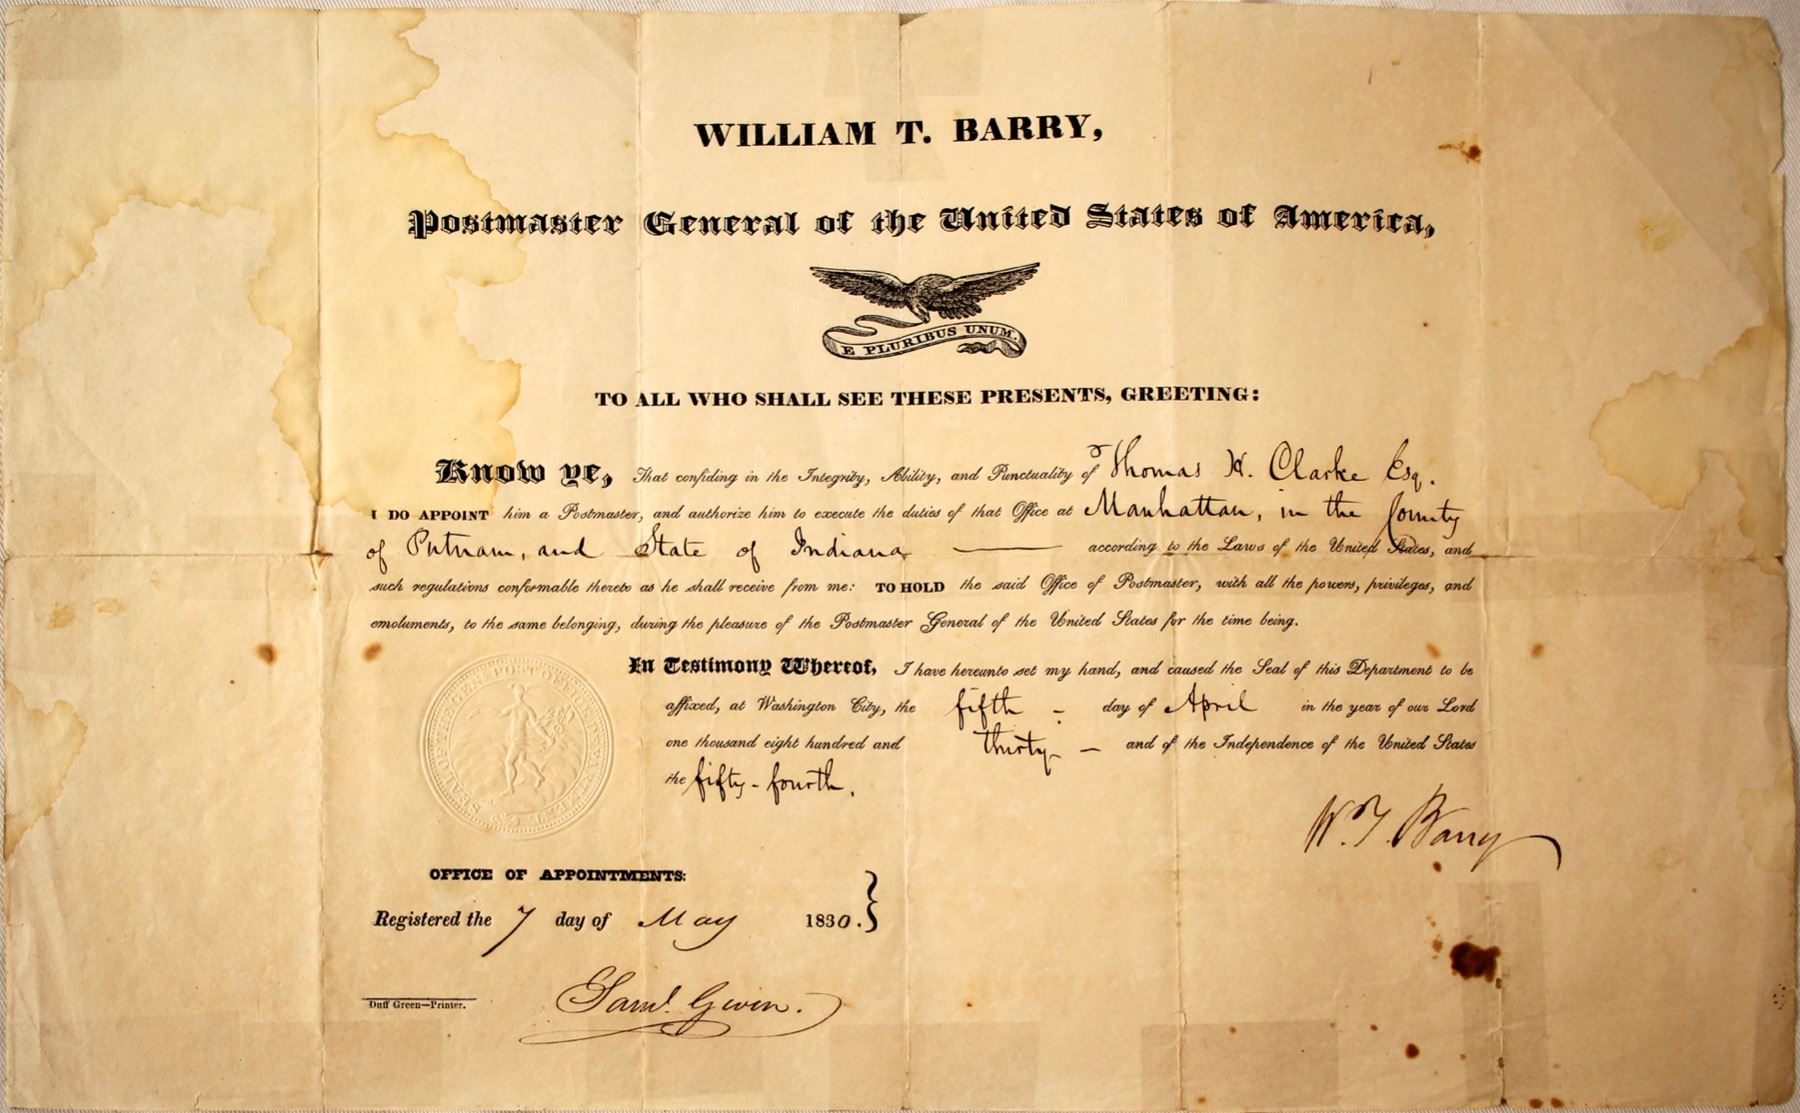 WILLIAM T. BARRY,
Postmaster General of the United States of America,
E PLURIBUS UNUM.
TO ALL WHO SHALL SEE THESE PRESENTS, GREETING:
Know ye, That confiding in the Integrity, Ability, and Punctuality of Thomas H. Clarke Esq.
I DO APPOINT him a Postmaster, and authorize him to execute the duties of that Office at Manhattan, in the County
of Putnam, and State of Indiana — according to the Laws of the United States, and
such regulations conformable thereto as he shall receive from me: TO HOLD the said Office of Postmaster, with all the powers, privileges, and
emoluments, to the same belonging, during the pleasure of the Postmaster General of the United States for the time being.
In Testimony Whereof, I have hereunto set my hand, and caused the Seal of this Department to be
affixed, at Washington City, the fifth - day of April in the year of our Lord
one thousand eight hundred and thirty - and of the Independence of the United States
the fifty-fourth.
SEAL OF THE GEN. POST OFFICE DEPARTMENT US
W. T. Barry
OFFICE OF APPOINTMENTS:
Registered the 7 day of May 1830.
Saml. Gwin.
Duff Green—Printer.